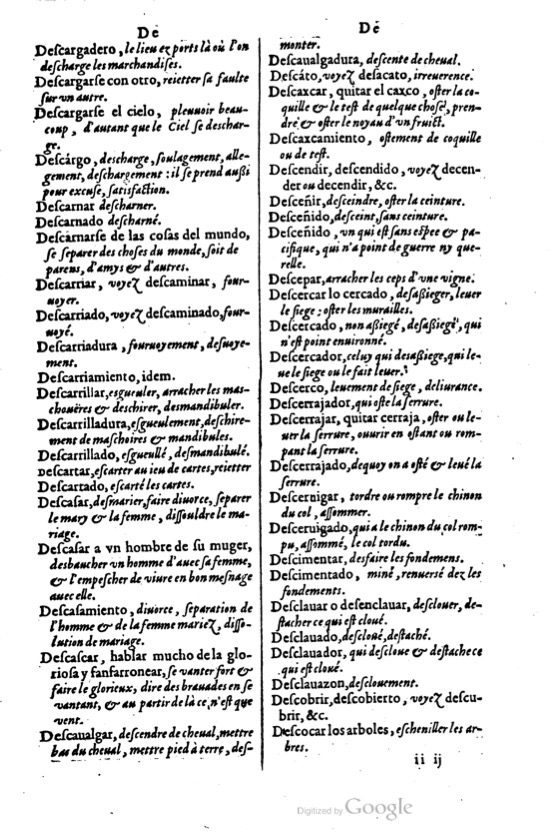 De
Deſcargadero, le lieu et ports là où l'on
deſcharge les marchandiſes.
Deſcargarſe con otro, reietter ſa faulte
ſur vn autre.
Deſcargarſe el cielo, pleuuoir beau-
coup, d'autant que le Ciel ſe deſchar-
ge.
Deſcárgo, deſcharge, ſoulagement, alle-
gement, deſchargement : il ſe prend außi
pour excuſe, ſatisfaction.
Deſcarnar deſcharner.
Deſcarnado deſcharné.
Deſcarnarſe de las coſas del mundo,
ſe ſeparer des choſes du monde, ſoit de
parens, d'amys & d'autres.
Deſcarriar, voyez deſcaminar, four-
uoyer.
Deſcarriado, voyez deſcaminado, four-
uoyé.
Deſcarriadura, fouruoyement, deſuoye-
ment.
Deſcarriamiento, idem.
Deſcarrillar, eſgueuler, arracher les maſ-
choüeres & deſchirer, desmandibuler.
Deſcarrilladura, eſgueulement, deſchire-
ment de maſchoires & mandibules.
Deſcarrillado, eſgueullé, deſmandibulé.
Deſcartar, eſcarter au ieu de cartes, reietter
Deſcartado, eſcarté les cartes.
Deſcaſar, deſmarier, faire diuorce, ſeparer
le mary & la femme, diſſouldre le ma-
riage.
Deſcaſar a vn hombre de ſu muger,
desbaucher vn homme d'auec ſa femme,
& l'empeſcher de viure en bon meſnage
auec elle.
Deſcaſamiento, diuorce, ſeparation de
l'homme & de la femme mariez, diſſo-
lution de mariage.
Deſcaſcar, hablar mucho de la glo-
rioſa y fanfarronear, ſe vanter fort &
faire le glorieux, dire des brauades en ſe
vantant, & au partir de là ce, n'eſt que
vent.
Deſcaualgar, deſcendre de cheual, mettre
bas du cheual, mettre pied à terre, deſ-
Dé
monter.
Deſcaualgadura, deſcente de cheual.
Deſcáto, voyez deſacato, irreuerence.
Deſcaxcar, quitar el caxco, oſter la co-
quille & le teſt de quelque choſe, pren-
dre & oſter le noyau d'vn fruict.
Deſcaxcamiento, oſtement de coquille
ou de teſt.
Deſcendir, deſcendido, voyez decen-
der ou decendir, &c.
Deſceñir, deſceindre, oſter la ceinture.
Deſceñido, deſceint, ſans ceinture.
Deſceñido, vn qui eſt ſans eſpee & pa-
cifique, qui n'a point de guerre ny que-
relle.
Deſcepar, arracher les ceps d'vne vigne.
Deſcercar lo cercado, deſaßieger, leuer
le ſiege : oſter les murailles.
Deſcercado, non aßiegé, deſaßiegé, qui
n'eſt point enuironné.
Deſcercador, celuy qui desaßiege, qui le-
ue le ſiege ou le fait leuer.
Deſcerco, leuement de ſiege, deliurance.
Deſcerrajador, qui oſte la ſerrure.
Deſcerrajar, quitar cerraja, oſter ou le-
uer la ſerrure, ouurir en oſtant ou rom-
pant la ſerrure.
Deſcerrajado, dequoy on a oſté & leué la
ſerrure.
Deſcernigar, tordre ou rompre le chinon
du col, aſſommer.
Deſceruigado, qui a le chinon du col rom-
pu, aſſommé, le col tordu.
Deſcimentar, desfaire les fondemens.
Deſcimentado, miné, renuersé dez les
fondements.
Deſclauar o deſenclauar, deſclouer, de-
ſtacher ce qui eſt cloué.
Deſclauado, deſcloüé, deſtaché.
Deſclauador, qui deſcloue & deſtache ce
qui eſt cloué.
Deſclauazon, deſclouement.
Deſcobrir, deſcobierto, voyez deſcu-
brir, &c.
Deſcocar los arboles, eſcheniller les ar-
bres.
ii ij
Digitized by Google